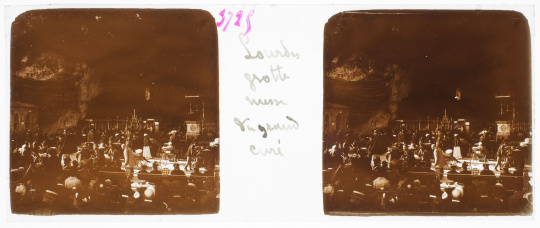 3725
Lourdes
grotte
messe
du grand
curé